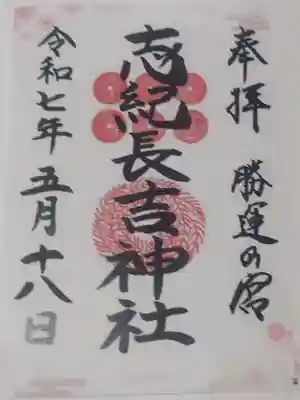 奉拝 勝運の宮
志紀長吉神社
令和七年五月十八日